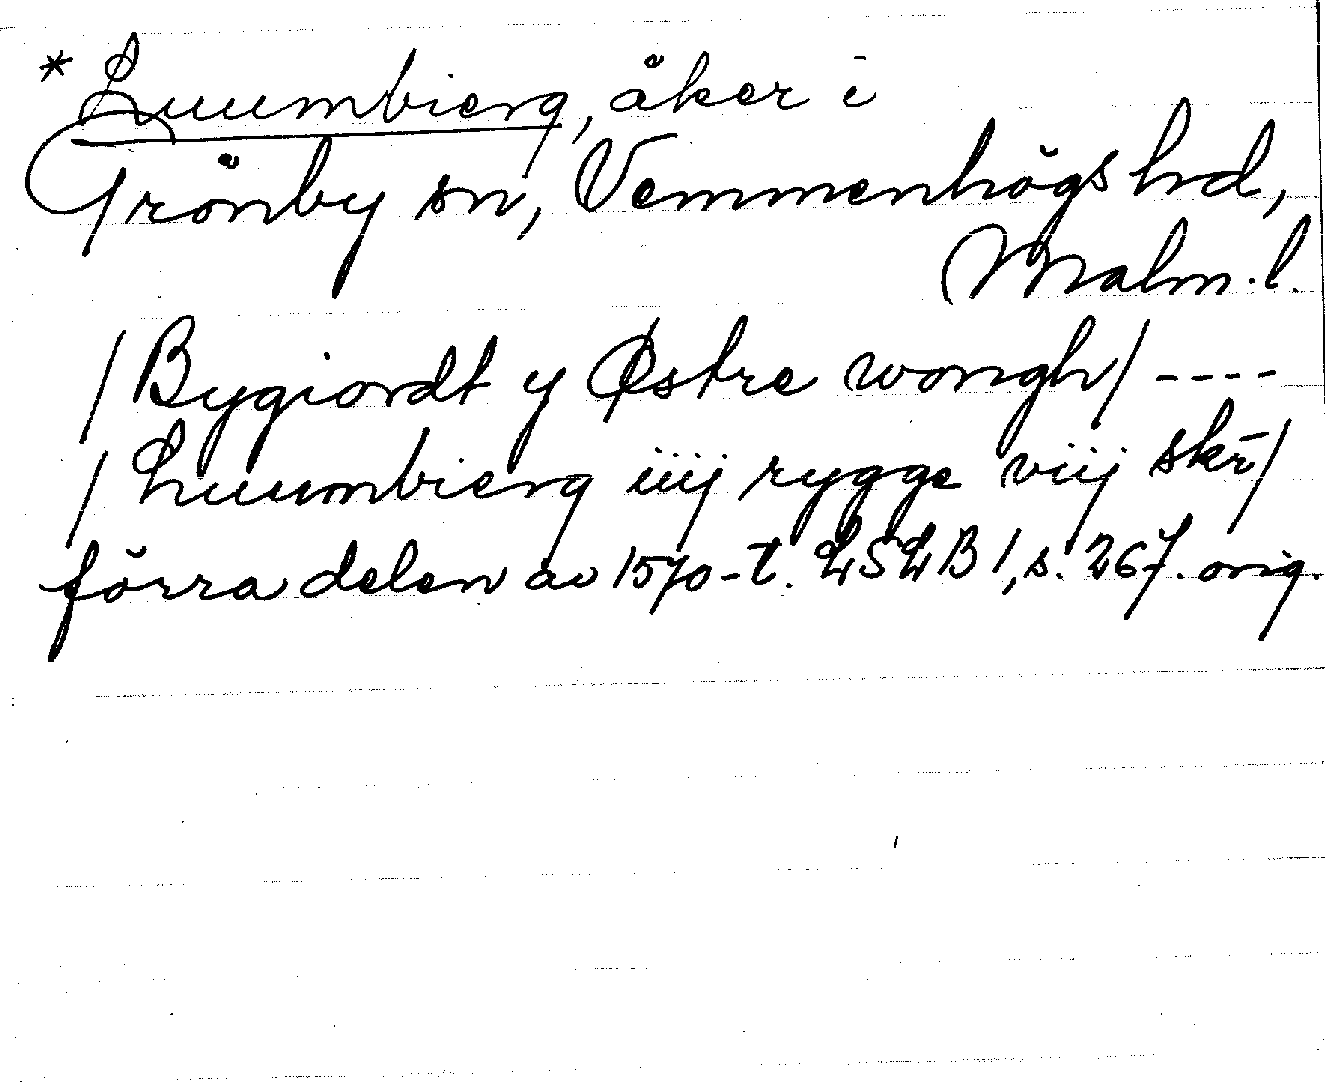 * Luumbierg, åker i
Grönby sn, Vemmenhögs hd,
Malm. l.
/Bygiordt y Østre wongh/ ----
/Luumbierg iiij rygge viij skr̄/
förra delen av 1570-t. LSLB 1, s. 267. orig.